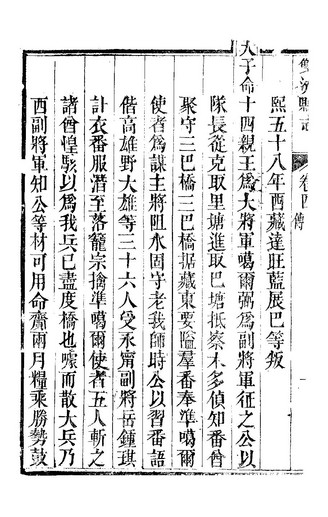 雙流縣志 卷四 傳
熙五十八年西藏達旺藍展巴等叛
大子命十四親王爲大將軍噶爾弼爲副將軍征之公以
隊長從克取里塘進取巴塘抵察木多偵知番酋
聚守三巴橋三巴橋據藏東要隘羣番奉準噶爾
使者爲謀主將阻水固守老我師時公以習番語
偕高雄野大雄等三十六人受永甯副將岳鍾琪
計衣番服潛至落籠宗擒準噶爾使者五人斬之
諸酋惶駭以爲我兵已盡度橋也噓而散大兵乃
西副將軍知公等材可用命齎兩月糧乘勝勢鼓